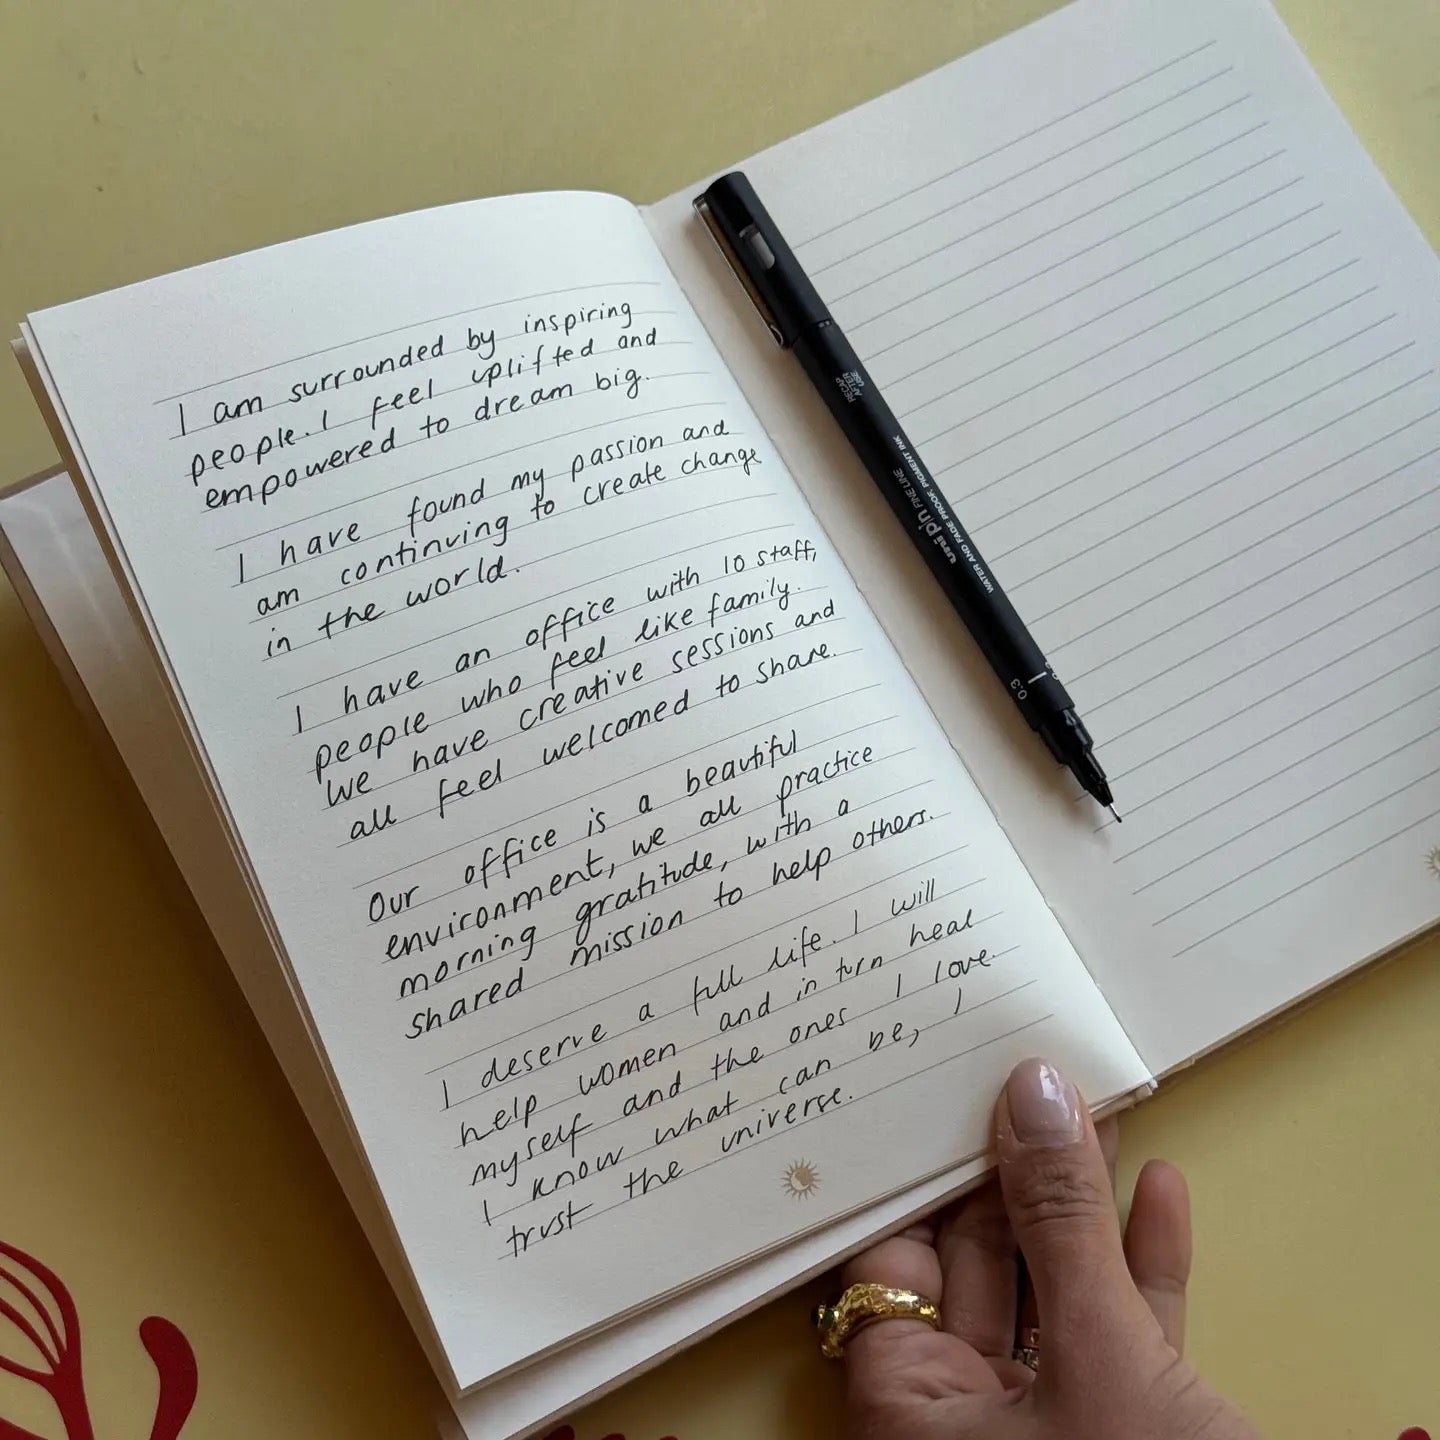 I am surrounded by inspiring
people. I feel uplifted and
empowered to dream big.
I have found my passion and
am continuing to create change
in the world.
I have an office with 10 staff,
people who feel like family.
We have creative sessions and
all feel welcomed to share.
Our office is a beautiful
environment, we all practice
morning gratitude, with a
shared mission to help others.
I deserve a full life. I will
help women and in turn heal
myself and the ones I love.
I know what can be, I
trust the universe.
RECAP
AFTER
USE
uni pin FINE LINE
WATER AND FADE PROOF, PIGMENT INK
0.3